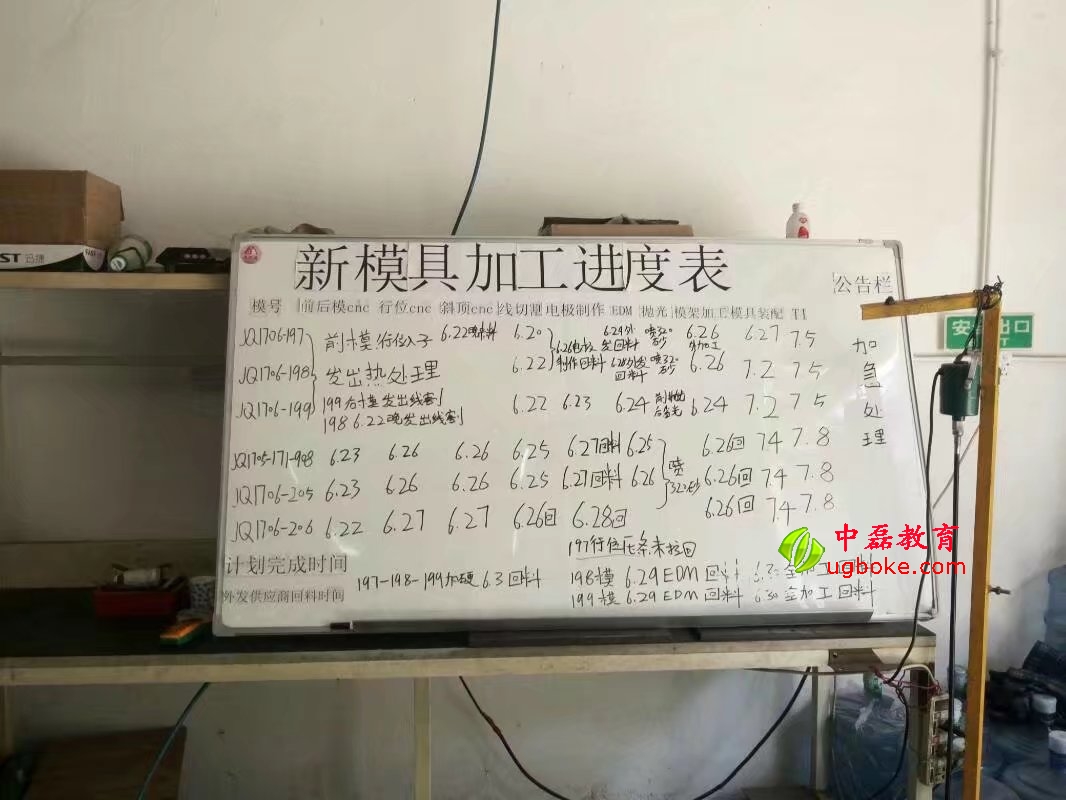 新模具加工进度表
公告栏
模号 前后模cnc 行位cnc 斜顶cnc 线切割 电极制作 EDM 抛光 模架加工 模具装配 T1
JQ1706-197 前模行位入子 6.22 6.20 6.26 6.27 7.5
JQ1706-198 发出热处理 6.22 制作回料 回料 6.26 7.2 7.5
JQ1706-199 199后模发出线割 6.22 6.23 6.24 6.24 7.2 7.5
198 6.22晚发出线割
加急处理
JQ1705-171-998 6.23 6.26 6.26 6.25 6.27回料 6.25 6.26回 7.4 7.8
JQ1706-205 6.23 6.26 6.26 6.25 6.27回料 6.26 喷320砂 6.26回 7.4 7.8
JQ1706-206 6.22 6.27 6.27 6.26回 6.28回 6.26回 7.4 7.8
197行位压条未
计划完成时间
197-198-199加硬 6.3回料
198模 6.29 EDM 回
外发供应商回料时间
199模 6.29 EDM 回料 6.30 加工回料
中磊教育
ugboke.com
安 出口
迅捷